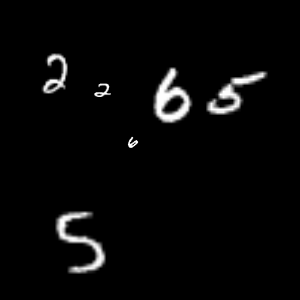 2 2 6 5
6
5